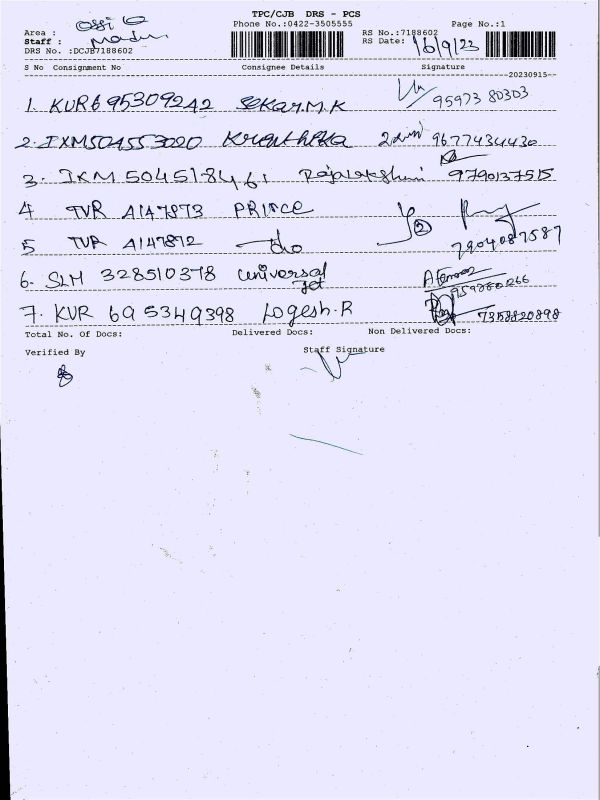 TPC/CJB DRS - PCS
Area : Phone No.:0422-3505555 Page No.:1
Staff : Madu RS No.:7188602
DRS No. :DCJB7188602 RS Date: 16/9/23
S No Consignment No Consignee Details Signature
--20230915--
1. KUR695309242 Sekar.M.K 9597380303
2. IXM504553020 9677434430
3. IXM504518461 Rajalakshmi 9790137515
4 TVR A147873 PRINCE
5 TVR A147872 do 7904087587
6. SLM 328510378 universal Jet
7. KUR 695349398 Logesh.R 7358820898
Total No. Of Docs: Delivered Docs: Non Delivered Docs:
Verified By Staff Signature